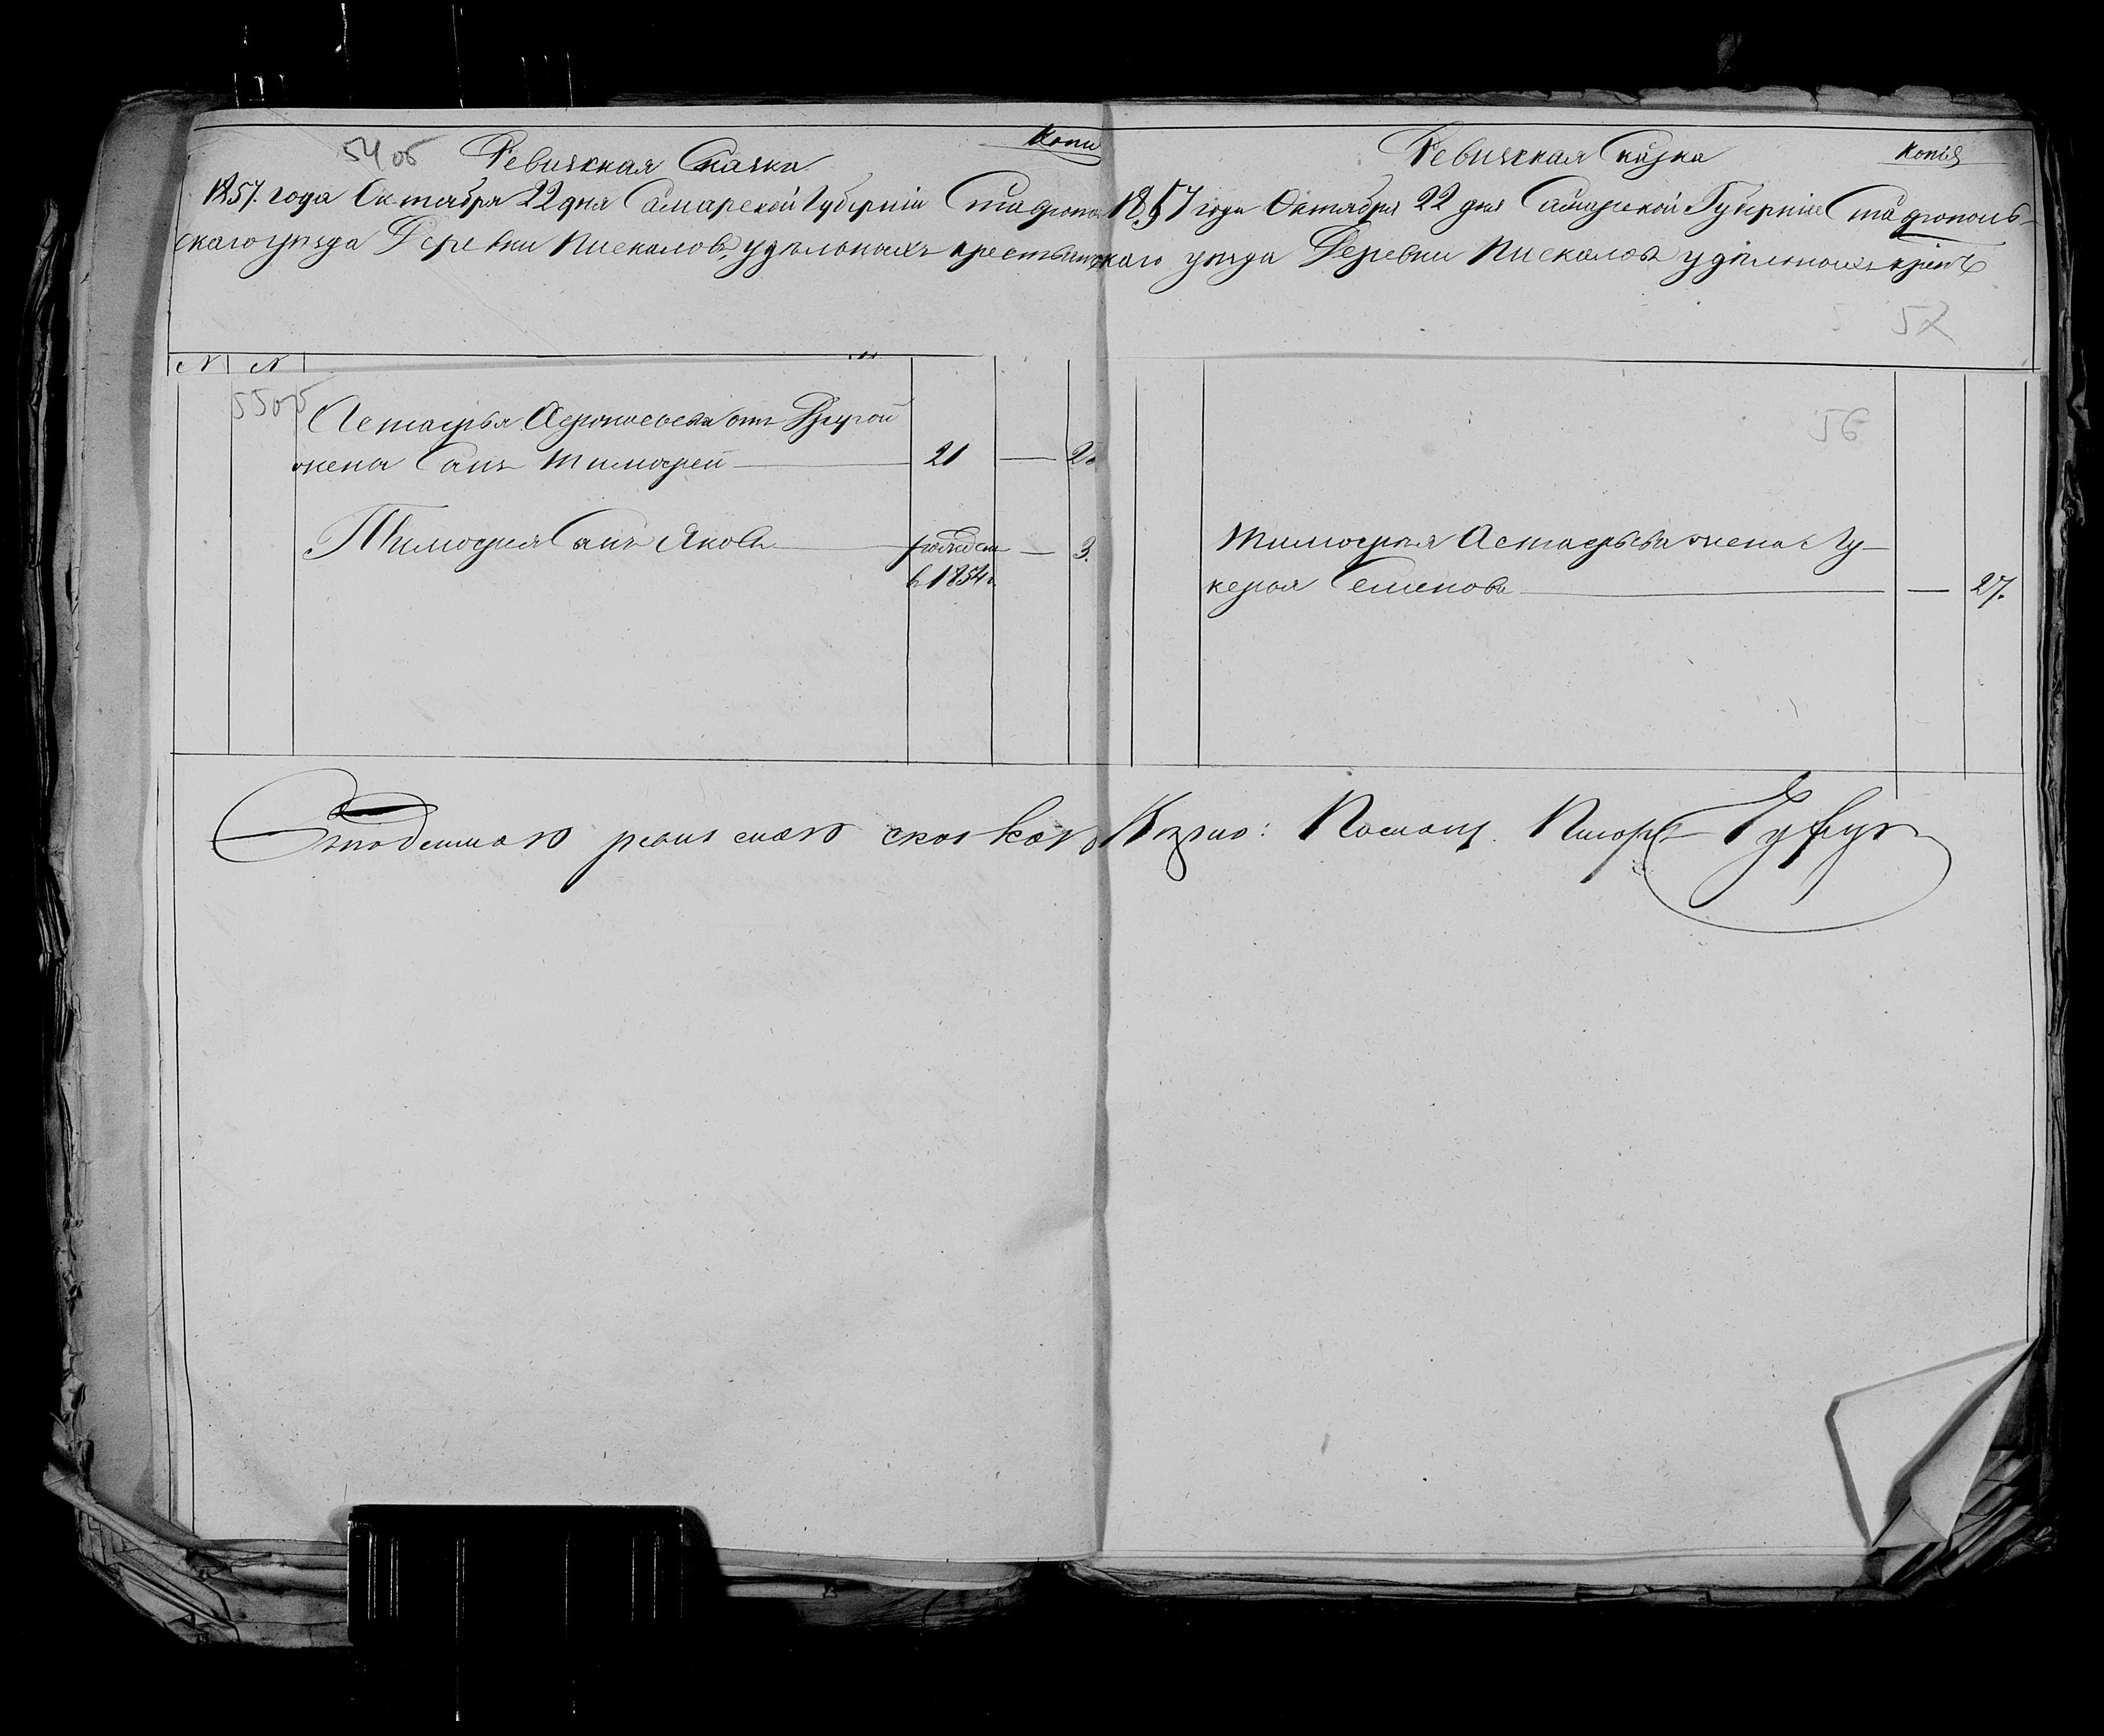 54 об
Ревизская Сказка
Копи
1857. года Октября 22 дня Самарской Губернии Ставропо
скаго уезда Деревни Пискалов, удельныхъ крестьян
N N
55 об
Астафья Афонасьева отъ Другой
жены Сынъ Тимофей 21 — 28
Тимофея Сынъ Яковъ рожден — 3.
в 1854 г.
Ревизская Сказка
Копия
1857 года Октября 22 дня Самарской Губернии Ставрополь-
скаго уезда Деревни Пискалов удельныхъ крес
52
56
Тимофея Астафьева жена Лу-
керья Семенова — 27.
ревизскаго Помощ. Писаря